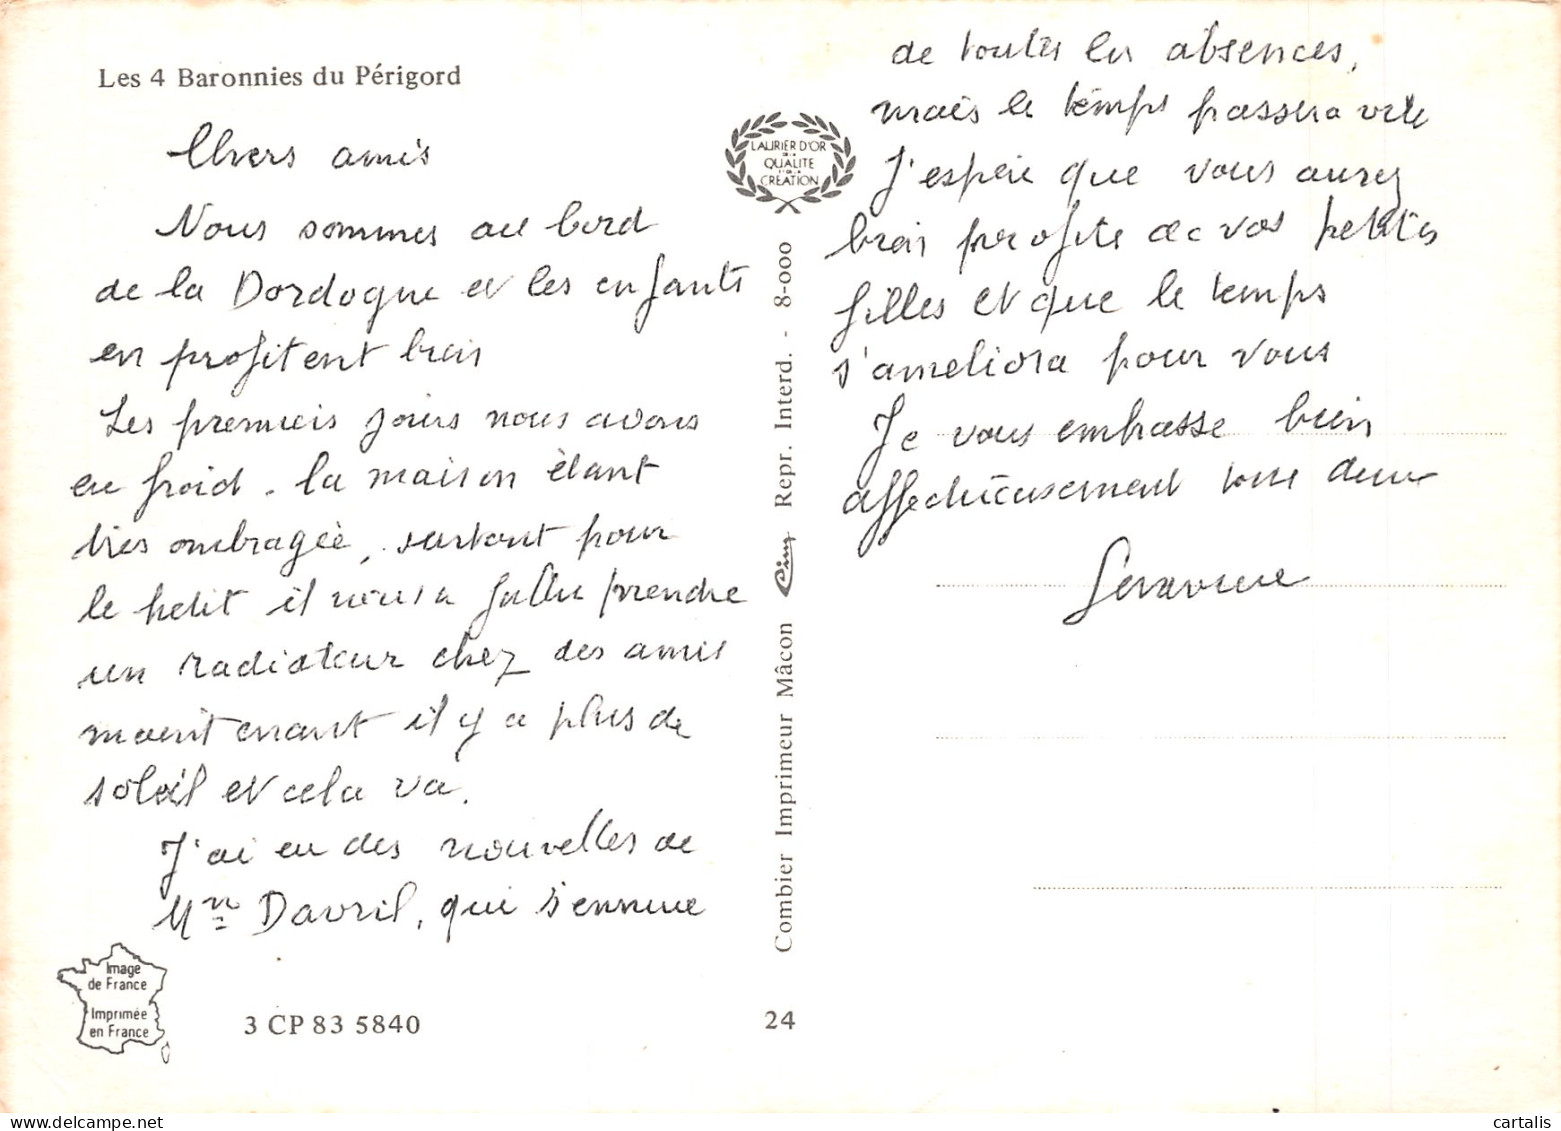 Les 4 Baronnies du Périgord
Chers amis
Nous sommes au bord
de la Dordogne et les enfants
en profitent bien
Les premiers jours nous avons
eu froid. la maison étant
très ombragée, surtout pour
le petit il nous a fallu prendre
un radiateur chez des amis
maintenant il y a plus de
soleil et cela va.
J'ai eu des nouvelles de
Mn Davril, qui s'ennuie
de toutes les absences,
mais le temps passera vite
J'espère que vous aurez
bien profite de vos petites
filles et que le temps
s'ameliora pour vous
Je vous embrasse bien
affectueusement tous deux
LAURIER D'OR
DE LA
QUALITE
ET DE LA
CRÉATION
Combier Imprimeur Mâcon Cim Repr. Interd. - 8-000
Image
de France
Imprimée
en France
3 CP 83 5840
24
www.delcampe.net
cartalis